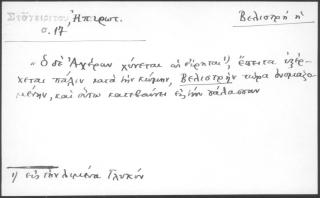 Στάγειρίτου Ἠπειρωτ. Βελιστρὴ ἡ
σ. 17,
"Ὁ δὲ Ἀχέρων χύνεται ὡς εἴρηται¹⁾, ἔπειτα ἐξέρ-
χεται πάλιν κατὰ τὴν κώμην, Βελιστρὴν τώρα ὀνομαζο-
μένην, καὶ οὕτω καταβαίνει εἰς τὴν θάλασσαν
1) εἰς τὸν λιμένα Γλυκὺν